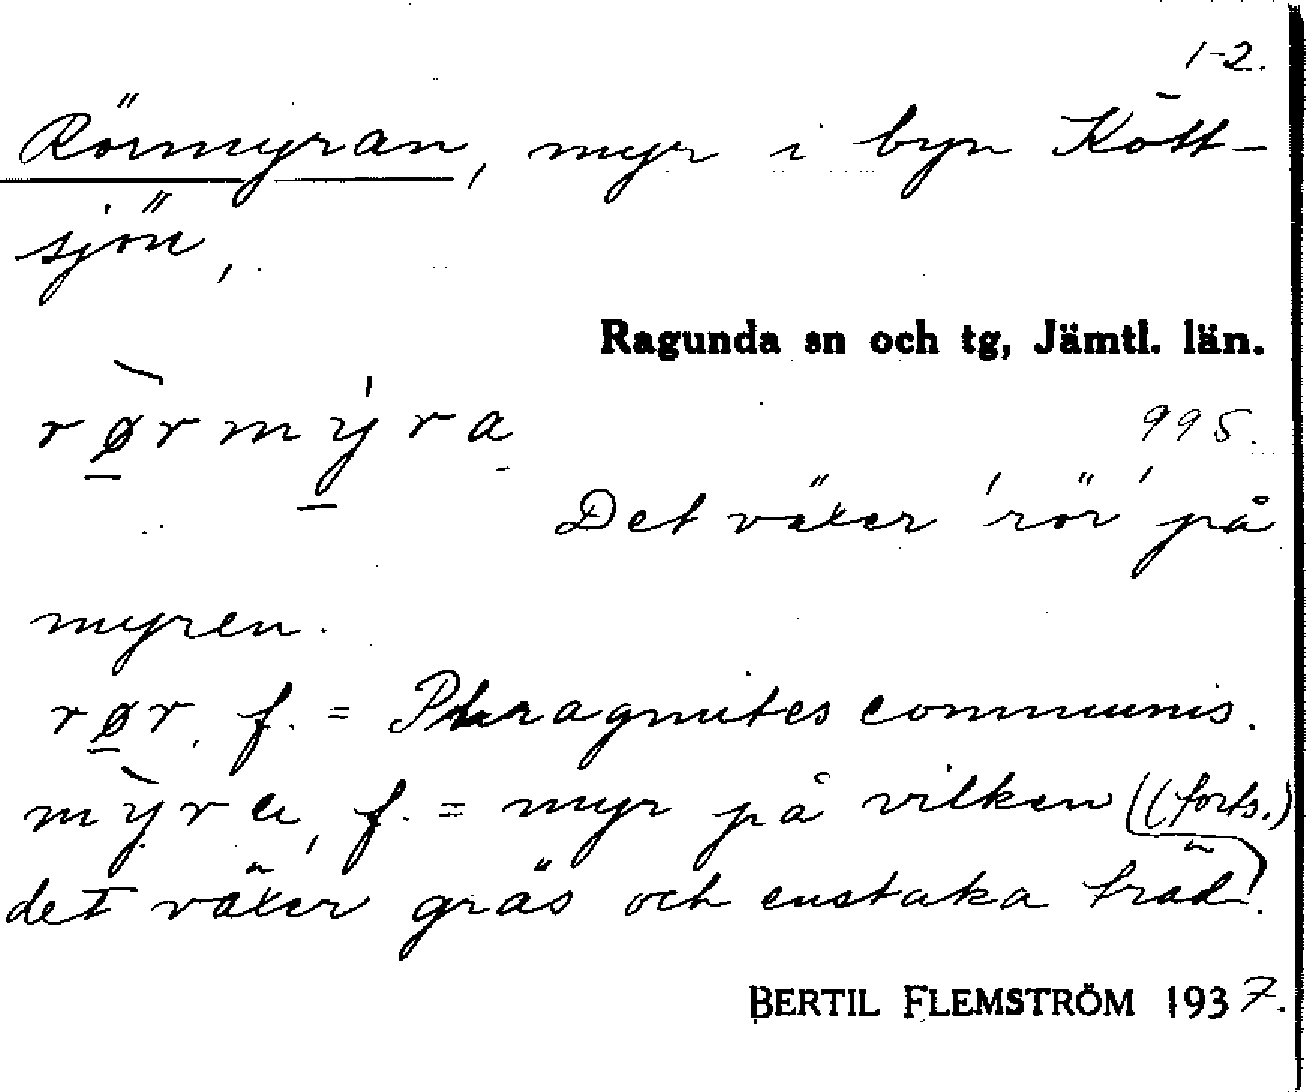 1-2.
Rörmyran, myr i byn Kött-
sjön,
Ragunda sn och tg, Jämtl. län.
rø̀rmýra
995.
Det växer 'rör' på
myren.
rør, f. = Phragmites communis.
mỳra, f. = myr på vilken ((forts.)
det växer gräs och enstaka träd).
BERTIL FLEMSTRÖM 1937.